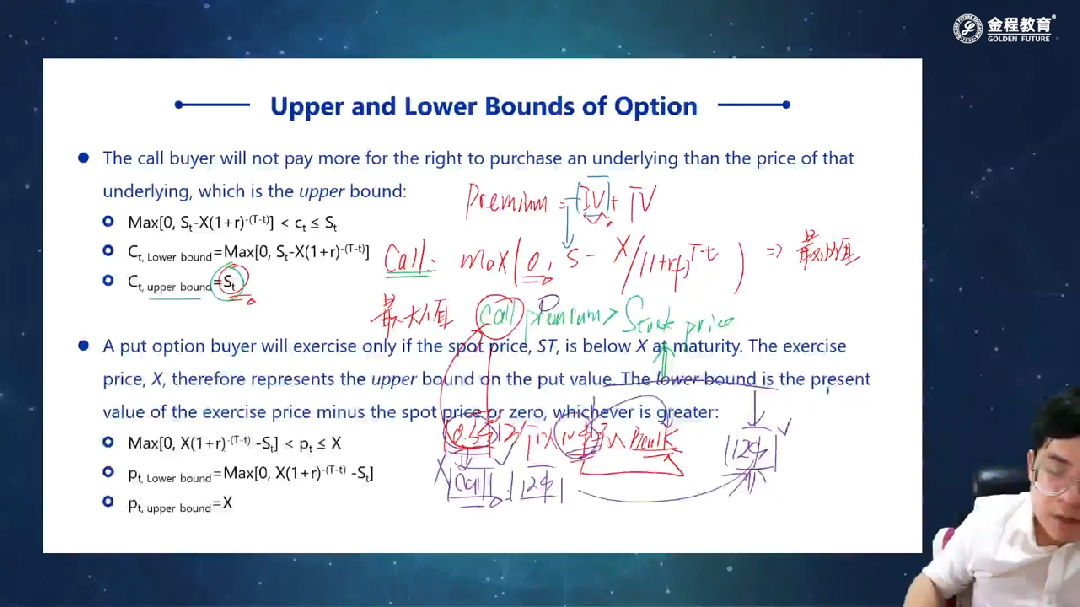 金程教育
GOLDEN FUTURE
Upper and Lower Bounds of Option
The call buyer will not pay more for the right to purchase an underlying than the price of that
underlying, which is the upper bound:
Premium = IV + TV
Max[0, St-X(1+r)-(T-t)] < ct ≤ St
Ct, Lower bound=Max[0, St-X(1+r)-(T-t)]
Call: max(0, S - X/(1+rf)T-t) ⇒ 最小值
Ct, upper bound=St
最大值 Call Premium > Stock price
A put option buyer will exercise only if the spot price, ST, is below X at maturity. The exercise
price, X, therefore represents the upper bound on the put value. The lower bound is the present
value of the exercise price minus the spot price or zero, whichever is greater:
Max[0, X(1+r)-(T-t) -St] < pt ≤ X
pt, Lower bound=Max[0, X(1+r)-(T-t) -St]
Call
pt, upper bound=X